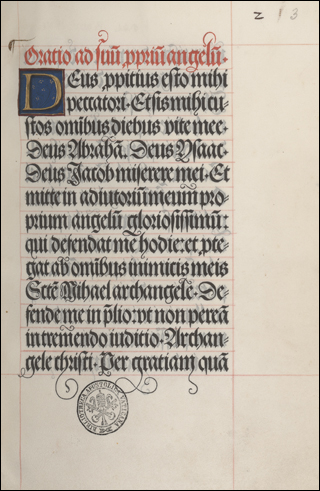 2 1 3
Oratio ad suū ꝓpriū angelū.
DEus ꝓpitius esto mihi
peccatori. Et sis mihi cu⸗
stos omībus diebus vite mee.
Deus Abrahā. Deus Ysaac.
Deus Jacob miserere mei. Et
mitte in adiutoriū meum pro⸗
prium angelū gloriosissimū:
qui defendat me hodie: et ꝓte⸗
gat ab omībus inimicis meis
Scte Mihael archangele. De⸗
fende me in p̄lio: vt non pereā
in tremendo iuditio. Archan⸗
gele christi. Per gratiam quā
BIBLIOTHECA APOSTOLICA VATICANA